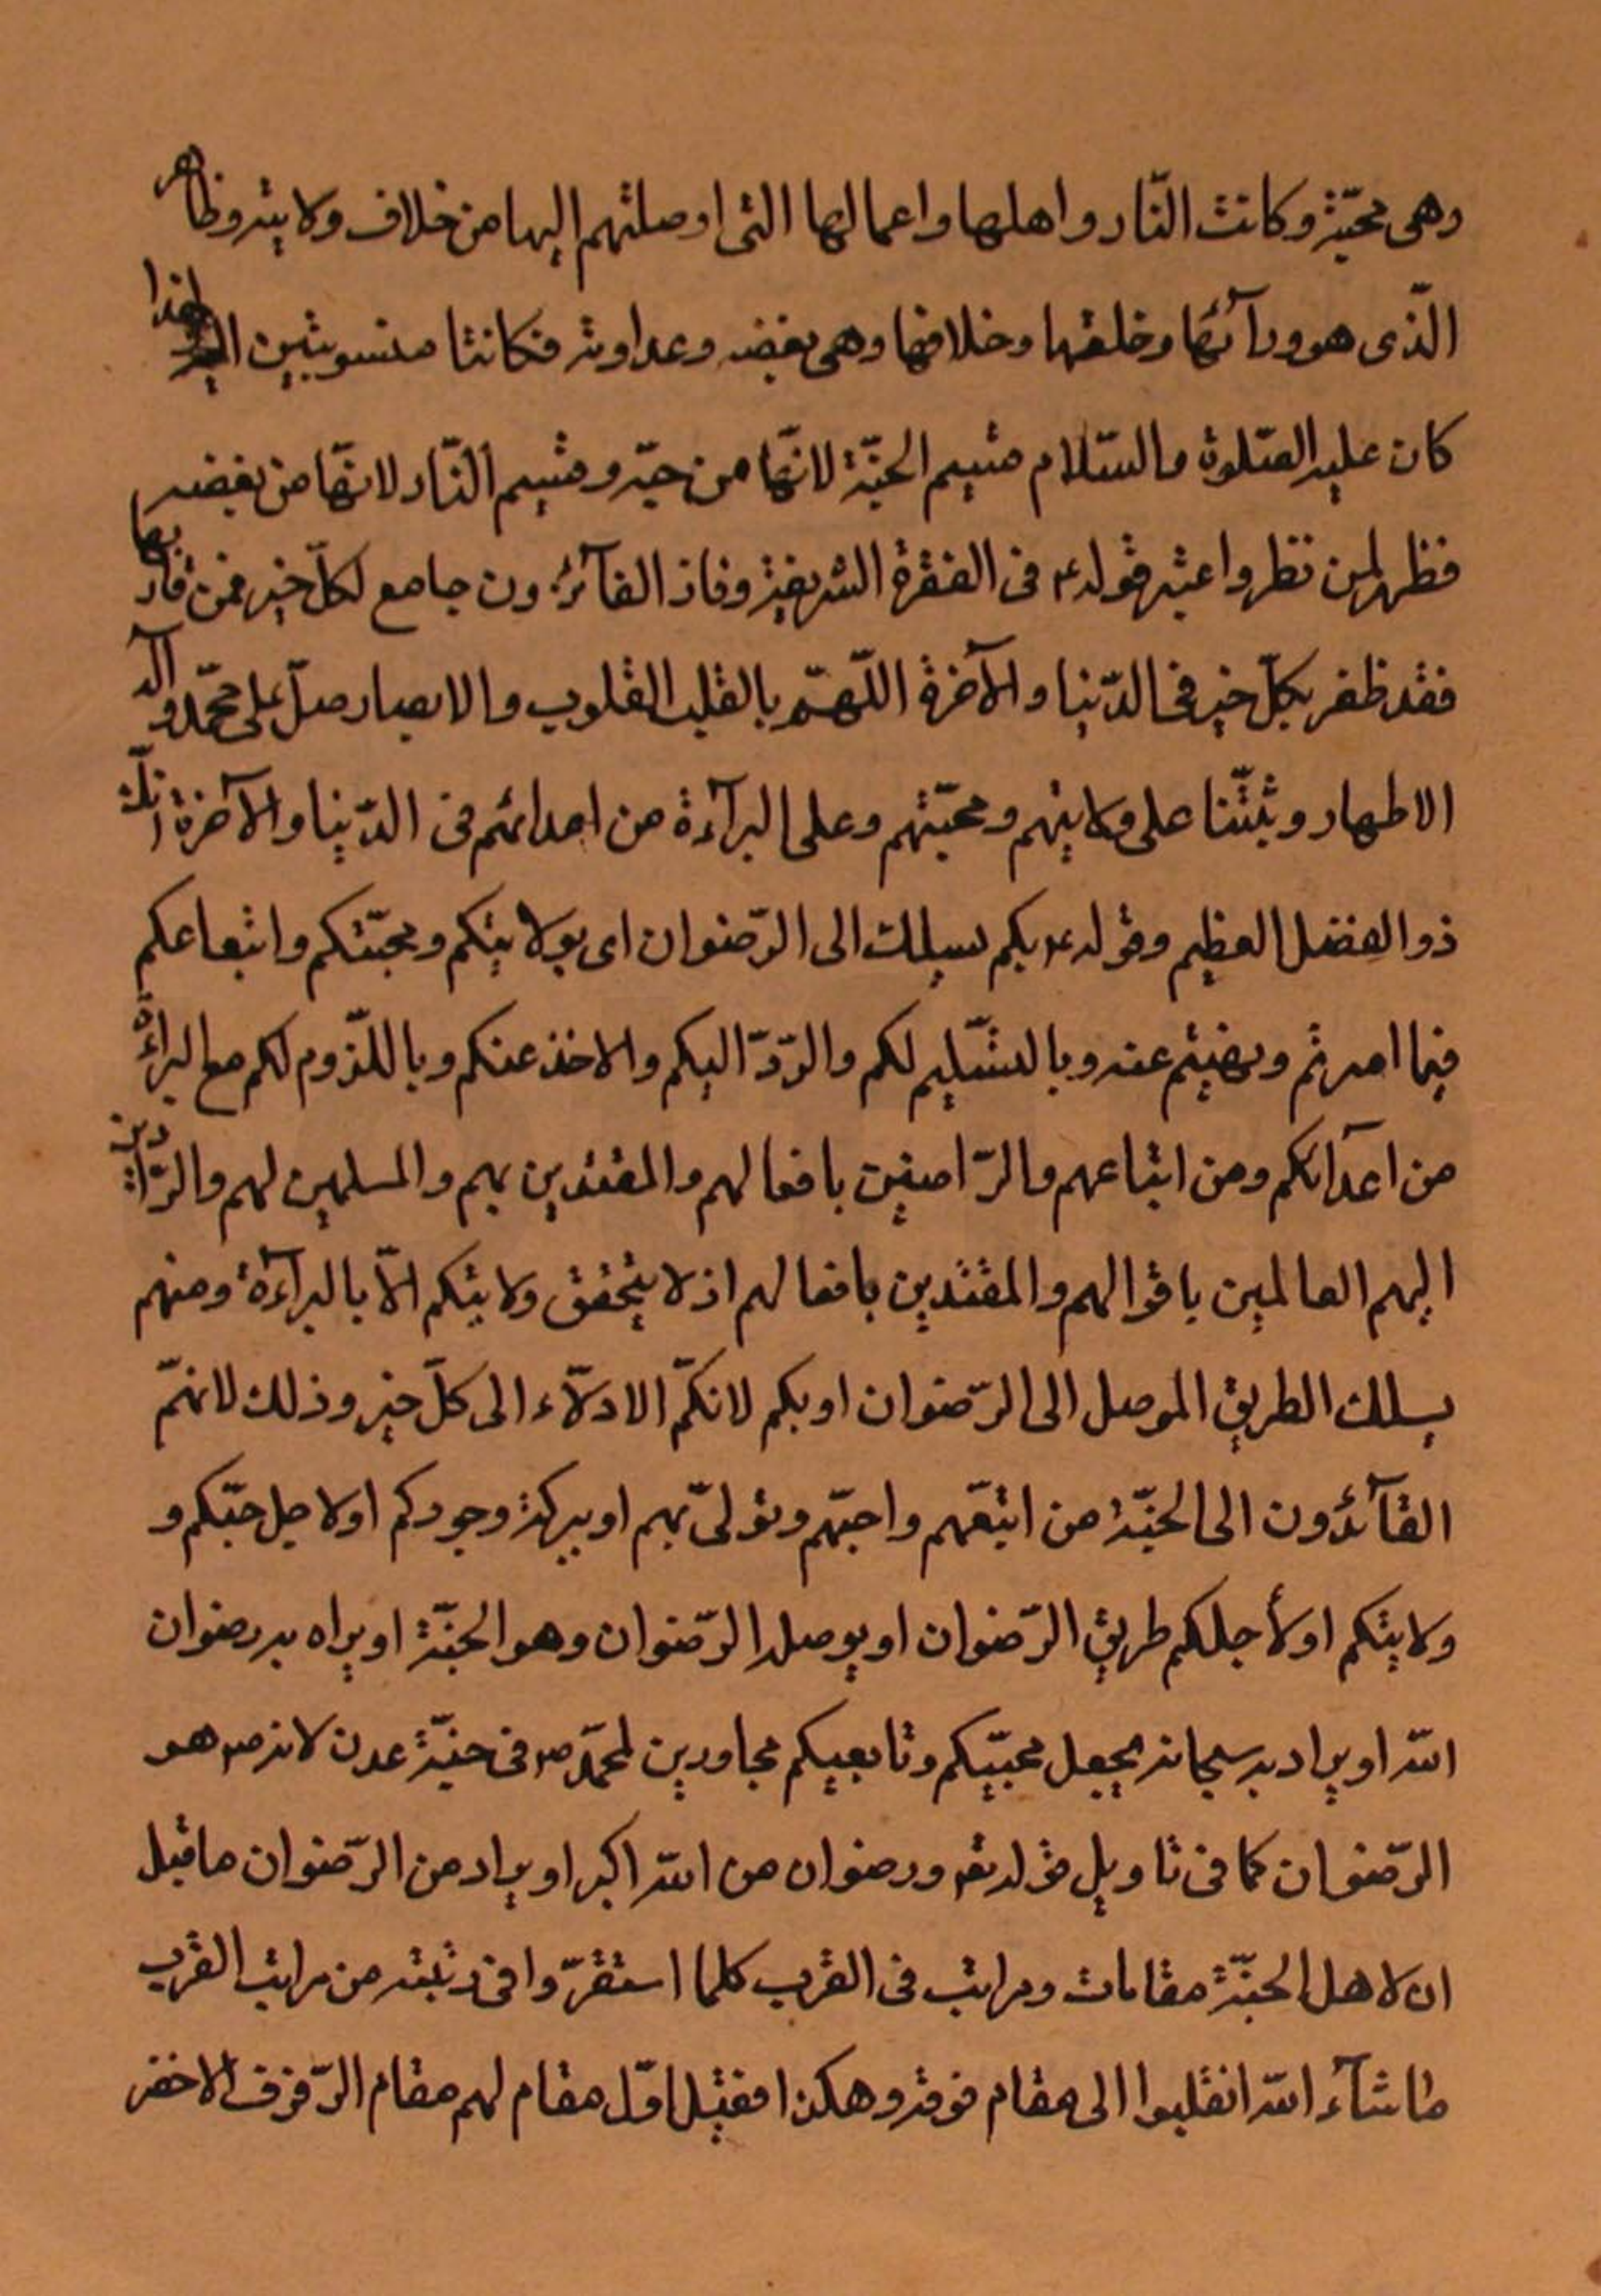 وهى محبّة وكانت النّار واهلها واعمالها التى اوصلتهم اليها من خلاف ولايته وظاهر
الّذى هو ورآئها وخلفها وخلافها وهى بغضه وعداوته فكانتا منسوبتين اليه ولهذا
كان عليه الصّلوة والسّلام قسيم الجنّة لانّها من حبّه وقسيم النّار لانّها من بغضه
فظهر لمن نظر واعتبر قوله ع فى الفقرة الشريفة وفاز الفآئزون جامع لكلّ خير فمن فاز بها
فقد ظفر بكلّ خير فى الدّنيا والآخرة اللّهمّ يا مقلب القلوب والابصار صلّ على محمّد وآله
الاطهار وثبّتنا على ولايتهم ومحبّتهم وعلى البرآءة من اعدائهم فى الدّنيا والآخرة انّك
ذو الفضل العظيم وقوله ع بكم يسلك الى الرّضوان اى بولايتكم ومحبّتكم واتباعكم
فيما امرتم ونهيتم عنه وبالتسّليم لكم والرّدّ اليكم والاخذ عنكم وباللّزوم لكم مع البراءة
من اعدائكم ومن اتباعهم والرّاضين بافعالهم والمقتدين بهم والمسلمين لهم والرّادّين
اليهم العالمين باقوالهم والمقتدين بافعالهم اذ لا يتحقق ولايتكم الاّ بالبرآءة ومنهم
يسلك الطريق الموصل الى الرّضوان او بكم لانكّم الادلّاء الى كلّ خير وذلك لانهّم
القآئدون الى الجنّة من اتبعّهم واحبّهم وتولىّ بهم او ببركة وجودكم او لاجل حبّكم و
ولايتكم او لأجلكم طريق الرّضوان او يوصل الرّضوان وهو الجنّة او يراد به رضوان
اللّه او يراد به سبحانه يجعل محبيّكم وتابعيكم مجاورين لمحمّد ص فى جنّة عدن لانه ص هو
الرّضوان كما فى تاويل قوله تع ورضوان من اللّه اكبر او يراد من الرّضوان ما قيل
ان لاهل الجنّة مقامات ومراتب فى القرب كلما استقرّوا فى رتبته من مراتب القرب
ما شآء اللّه انقلبوا الى مقام فوقه وهكذا فقيل اوّل مقام لهم مقام الرّفرف الاخضر